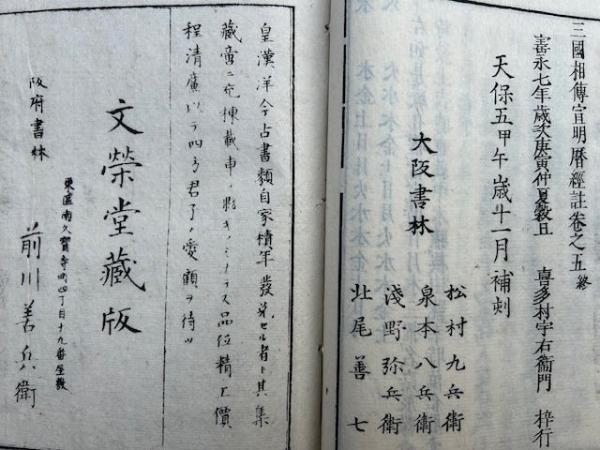 三國相傳宣明暦經註卷之五終
寳永七年歳次庚寅仲夏穀旦 喜多村宇右衞門 梓行
天保五甲午歳十一月補刻
大阪書林
松村九兵衛
泉本八兵衛
淺野弥兵衛
北尾善七
皇漢洋今古書類自家積年發兌セル者ト其集
藏ニ充棟載車ノ
品位精工價
程清廉以テ四方君子ノ愛顧ヲ待ツ
文榮堂藏版
阪府書林
東區南久寳寺町四丁目十九番
前川善兵衛